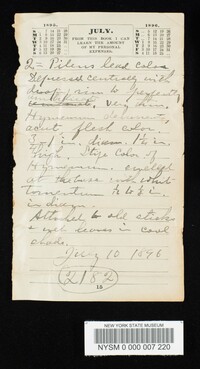 1895. JULY. 1896.
FROM THIS BOOK I CAN
LEARN THE AMOUNT
OF MY PERSONAL
EXPENSES.
2 = Pileus lead color
depressed centrally with
droopy rim to
Very thin.
Hymenium
adnt. flesh color
in. diam. 1½ in.
high. Stipe color of
Hymenium. except
at the base with white
tomentum ⅛ to ¼ in.
in diam.
Attached to old sticks
& wet leaves in cool
shade.
July 10 1896
2182
15
NEW YORK STATE MUSEUM
NYSM 0 000 007 220